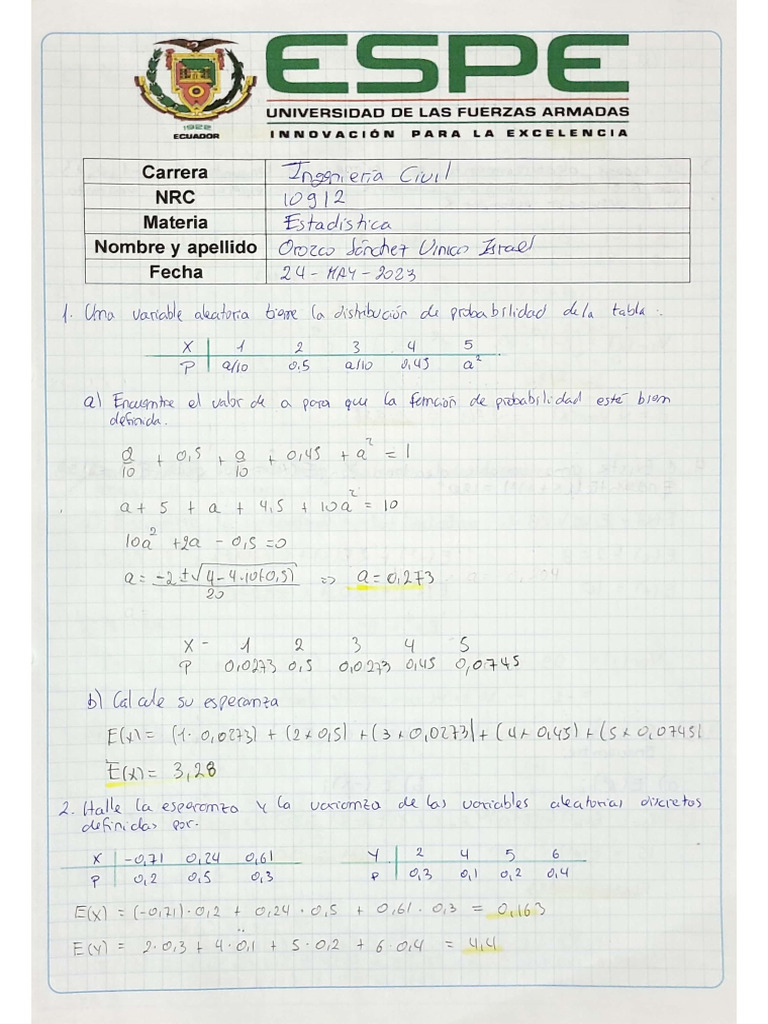 ESPE
UNIVERSIDAD DE LAS FUERZAS ARMADAS
INNOVACIÓN PARA LA EXCELENCIA
1922
ECUADOR
Carrera Ingeniería Civil
NRC 10912
Materia Estadística
Nombre y apellido Orozco Sánchez Vinico Israel
Fecha 24 - MAY - 2023
1. Una variable aleatoria tiene la distribución de probabilidad de la tabla:
X 1 2 3 4 5
P a/10 0,5 a/10 0,45 a²
a) Encuentre el valor de a para que la función de probabilidad esté bien
definida.
a/10 + 0,5 + a/10 + 0,45 + a² = 1
a + 5 + a + 4,5 + 10a² = 10
10a² + 2a - 0,5 = 0
a = (-2 ± √(4 - 4·10(-0,5)))/20 => a = 0,273
X - 1 2 3 4 5
P 0,0273 0,5 0,0273 0,45 0,0745
b) Calcule su esperanza
E(x) = (1 · 0,0273) + (2 x 0,5) + (3 x 0,0273) + (4 x 0,45) + (5 x 0,0745)
E(x) = 3,28
2. Halle la esperanza y la varianza de las variables aleatorias discretas
definidas por.
X -0,71 0,24 0,61 Y 2 4 5 6
P 0,2 0,5 0,3 P 0,3 0,1 0,2 0,4
E(X) = (-0,71) · 0,2 + 0,24 · 0,5 + 0,61 · 0,3 = 0,163
E(Y) = 2 · 0,3 + 4 · 0,1 + 5 · 0,2 + 6 · 0,4 = 4,4